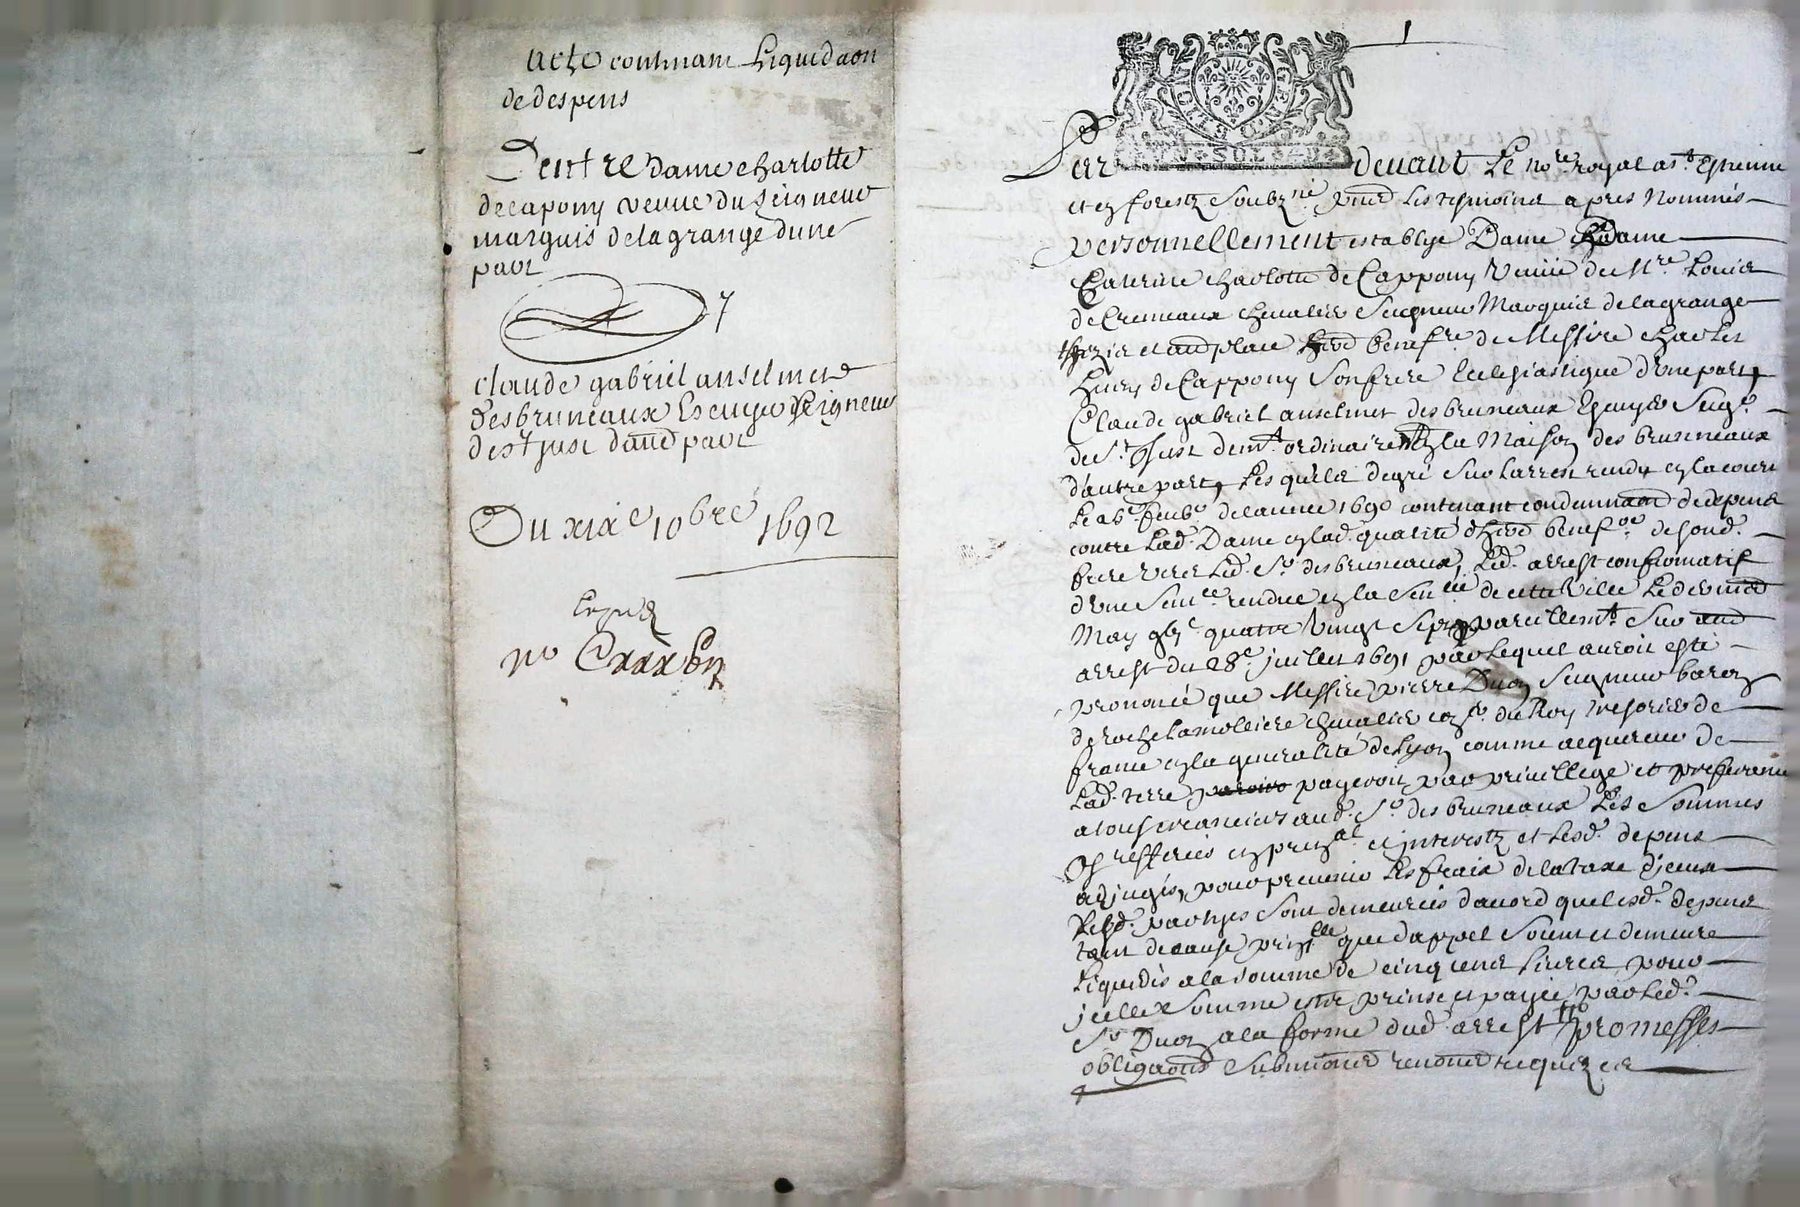 acte contenant Liquidaon
de despens
D'entre dame charlotte
de capony veuve du seigneur
marquis de la grange dune
part
7
claude gabriel anselmet
desbruneaux Escuyer seigneur
de st just daud part
Du xixe 10bre 1692
1
Par devant Le nore royal a st Estienne
et en forestz soubzne psnd les tesmoins apres nommés
personnellement establye Dame
Caterine charlotte de Cappony veuve de Mre Louis
de Cremeaux chevalier Seigneur Marquis de la grange
et place hered benefre de Messire charles
henry de Cappony son frere Eclesiastique d'une part,
Claude gabriel anselmet des bruneaux Escuyer Seigr
de St Just demt ordinairemt en la Maison des brunneaux
d'autre part, Les quels de gré sur larrest rendu en la cour
de lannee 1690 contenant condemnaond de depens
contre Lad. Dame en lad. qualité d'hered benefre de sond.
frere vers led. Sr des bruneaux, Led. arrest confirmatif
d'une Sence rendue en la Senee de cette ville Le
May quatre vingt sept, pareillemt. sur aud
arrest du 28e juillet 1691 par lequel auroit esté
prononcé que Messire pierre Duon Seigneur baron
de roche la molliere chevalier conser du Roy Tresorier de
france en la generalité de Lyon comme acquereur de
Lad. terre payeroit par privillege et preferance
a tous creanciers aud. Sr des bruneaux Les Sommes
y refferées en prinal et interestz et lesd. depens
adjugés, pour prevenir Les fraix de la taxe d'iceux
Lesd. partyes sont demeurées d'acord que lesd. depens
tant de cause prinlle que d'appel soient et demeure
Liquidés a la somme de cinq cens livres pour
icelle somme estre prinse et payée par led.
Sr Duon a la forme dud. arrest promesses
obligaond submiond renond requiz ces